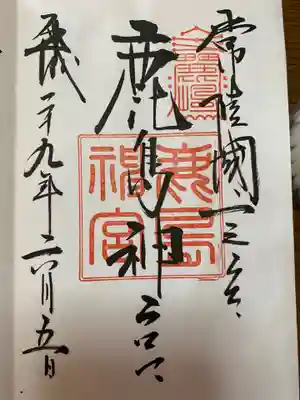 常陸國一之宮
鹿島神宮
平成二十九年六月五日
鹿島
神宮